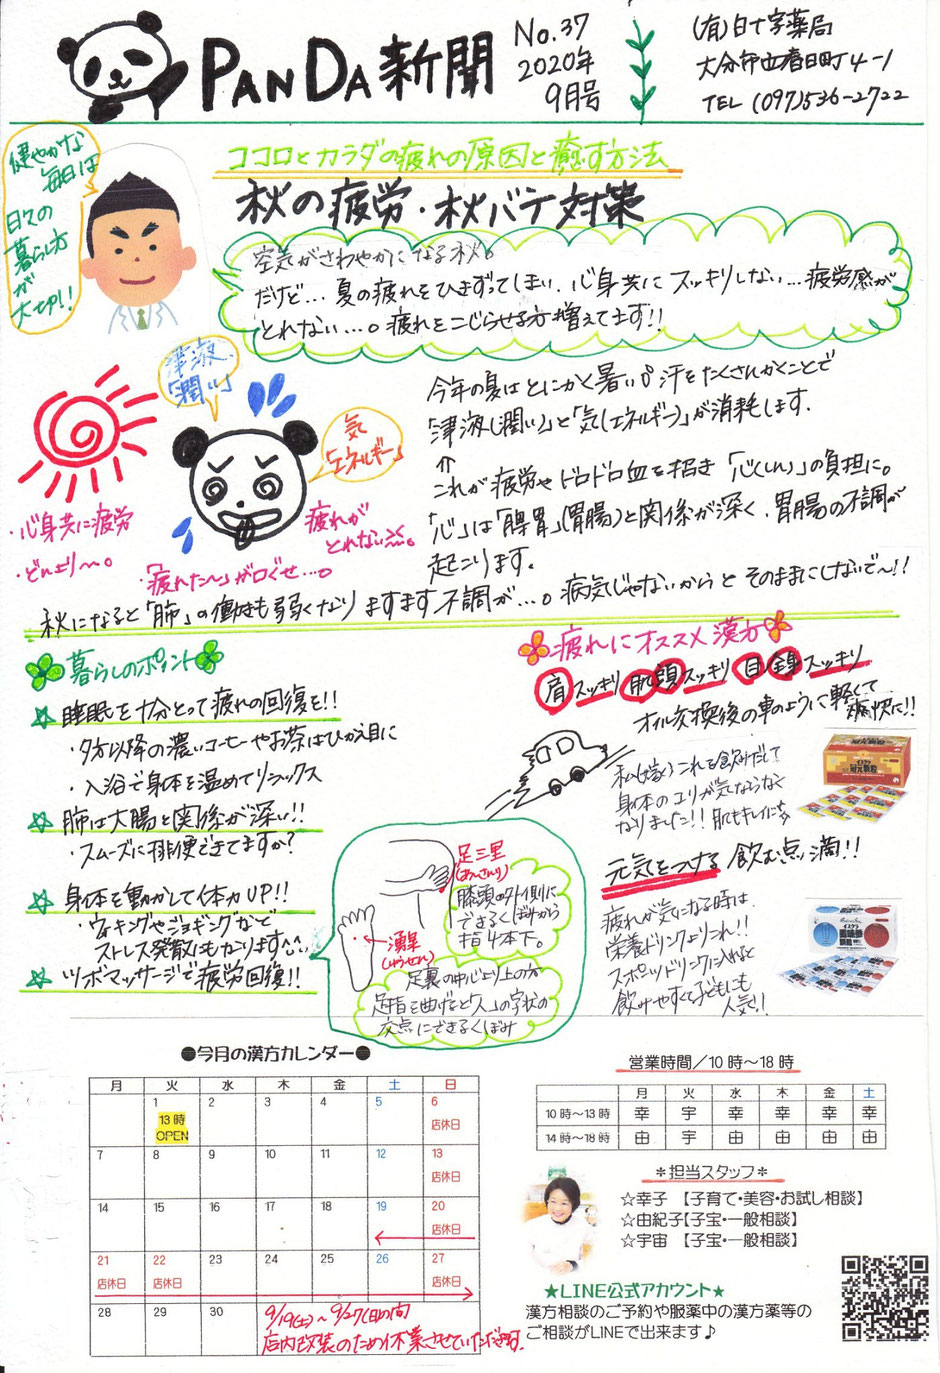 PANDA新聞
No.37
2020年
9月号
(有)白十字薬局
大分市立春日町4-1
TEL (097)536-2722
健やかな
毎日は
日々の
暮らし方
が
大切!!
ココロとカラダの疲れの原因と癒す方法
秋の疲労・秋バテ対策
空気がさわやかになる秋。
だけど…夏の疲れをひきずってしまい、心身共にスッキリしない…疲労感が
とれない…。疲れをこじらせる方増えてます!!
津液
「潤い」
気
「エネルギー」
・心身共に疲労
・どんより〜。
・「疲れた〜」が口ぐせ…。
疲れが
とれない〜。
今年の夏はとにかく暑い。汗をたくさんかくことで
「津液(潤い)」と「気(エネルギー)」が消耗します.
⇑
これが疲労やドロドロ血を招き「心(しん)」の負担に。
「心」は「脾胃」(胃腸)と関係が深く、胃腸の不調が
起こります。
秋になると「肺」の働きも弱くなりますます不調が…。病気じゃないからとそのままにしないで〜!!
暮らしのポイント
☆ 睡眠を十分とって疲れの回復を!!
・夕方以降の濃いコーヒーやお茶はひかえ目に
・入浴で身体を温めてリラックス
☆ 肺は大腸と関係が深い!!
・スムーズに排便できてますか?
☆ 身体を動かして体力UP!!
・ウォーキングやジョギングなどで
ストレス発散にもなります^^
☆ ツボマッサージで疲労回復!!
足三里
(あしさんり)
膝頭の外側に
できるくぼみから
指4本下。
湧泉
(ゆうせん)
足裏の中心より上の方
足指を曲げると「人」の字状の
交点にできるくぼみ
疲れにオススメ漢方
肩スッキリ 肌頭スッキリ 目全身スッキリ
オイル交換後の車のように軽くて
爽快に!!
これを飲みだして
身体のコリが気にならなく
なりました!! 肌もキレイに
元気をつける 飲む点滴!!
疲れが気になる時は、
栄養ドリンクよりこれ!!
スポーツドリンクに入れると
飲みやすくて子どもにも
人気!!
●今月の漢方カレンダー●
月 火 水 木 金 土 日
1 2 3 4 5 6
13時 店休日
OPEN
7 8 9 10 11 12 13
店休日
14 15 16 17 18 19 20
店休日
21 22 23 24 25 26 27
店休日 店休日 店休日
28 29 30
9/19(土)〜9/27(日)の間
店内改装のため休業させていただきます.
営業時間/10時〜18時
月 火 水 木 金 土
10時〜13時 幸 宇 幸 幸 幸 幸
14時〜18時 由 宇 由 由 由 由
*担当スタッフ*
☆幸子 【子育て・美容・お試し相談】
☆由紀子【子宝・一般相談】
☆宇宙 【子宝・一般相談】
★LINE公式アカウント★
漢方相談のご予約や服薬中の漢方薬等の
ご相談がLINEで出来ます♪